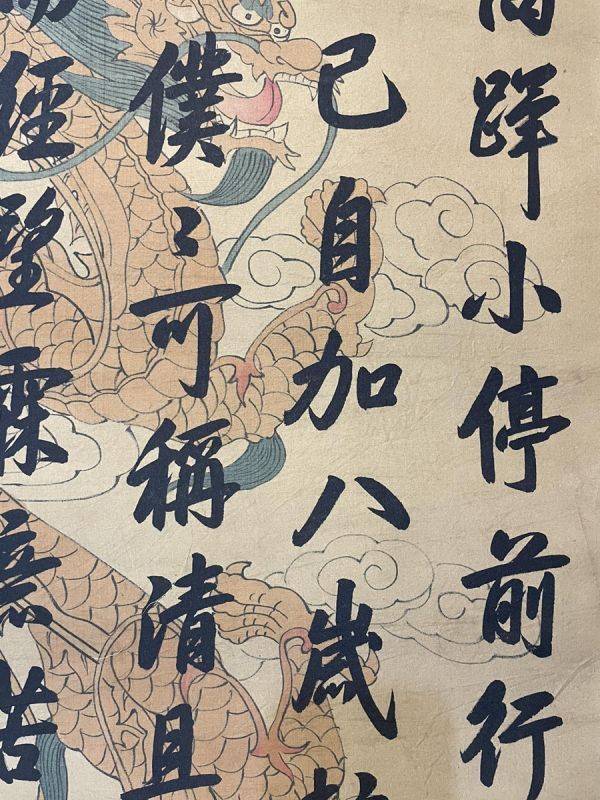 蹕小停前行
已自加八歲
僕〻可稱清且
經壁霖意苦